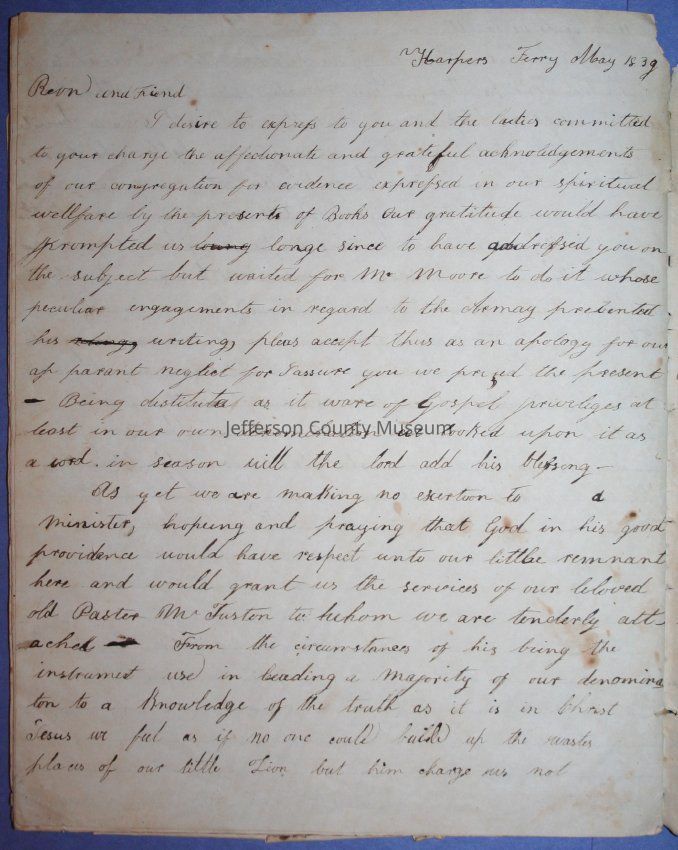 Harpers Ferry May 1839
Revn and Friend
I desire to express to you and the ladies committed
to your charge the affectionate and grateful acknoledgements
of our congregation for evidence expressed in our spiritual
wellfare by the presents of Books Our gratitude would have
prompted us longe since to have addressed you on
the subject but waited for Mr Moore to do it whose
peculiar engagements in regard to the Armay prevented
his writing, pleas accept thus as an apology for our
ap parant neglect for I assure you we prized the present
– Being destitute as it ware of Gospel priviliges at
least in our own we looked upon it as
a word in season will the lord add his blessing –
As yet we are making no exertion to a
Minister, hopeing and praying that God in his good
providence would have respect unto our little remnant
here and would grant us the services of our beloved
old Paster Mr Tuston to whom we are tenderly att-
ached – From the circumstances of his being the
instrumet used in leading a Majority of our denomina
ton to a Knowledge of the truth as it is in Christ
Jesus we feel as if no one could build up the wastes
places of our little Zion but him charge us not
Jefferson County Museum